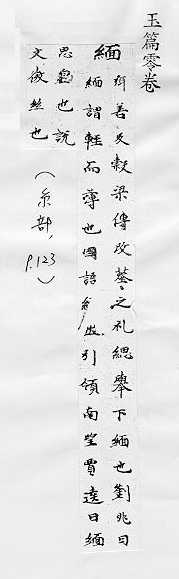 玉篇零卷
緬 弥善反穀梁傳改葬之礼緦舉下緬也劉兆曰
緬謂輕而薄也國語緬然引領南望賈逵曰緬
思皃也說
文微絲也
(糸部, p.123)